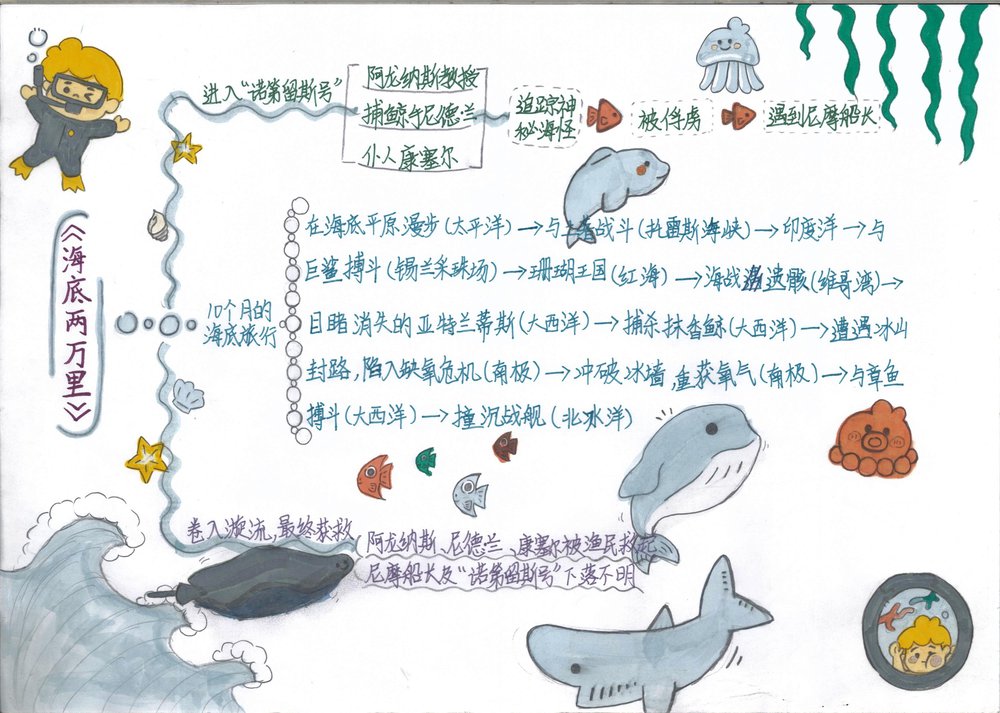 《海底两万里》
进入“诺第留斯号”
阿龙纳斯教授
捕鲸手尼德兰
仆人康塞尔
追踪神
秘海怪
被俘虏
遇到尼摩船长
10个月的
海底旅行
在海底平原漫步(太平洋)→与土著战斗(托雷斯海峡)→印度洋→与
巨鲨搏斗(锡兰采珠场)→珊瑚王国(红海)→海战遗骸(维哥湾)→
目睹消失的亚特兰蒂斯(大西洋)→捕杀抹香鲸(大西洋)→遭遇冰山
封路,陷入缺氧危机(南极)→冲破冰墙,重获氧气(南极)→与章鱼
搏斗(大西洋)→撞沉战舰(北冰洋)
卷入漩流,最终获救
阿龙纳斯、尼德兰、康塞尔被渔民救起
尼摩船长及“诺第留斯号”下落不明